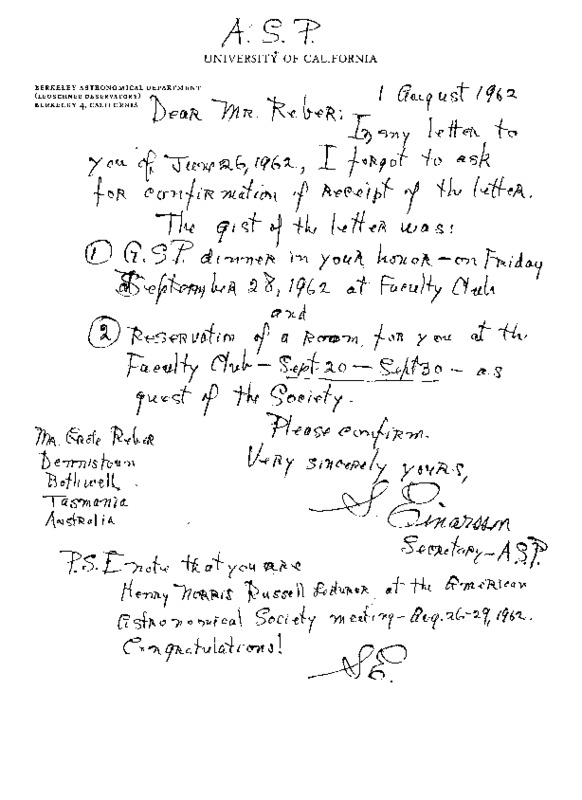 A.S.P.
UNIVERSITY OF CALIFORNIA
BERKELEY ASTRONOMICAL DEPARTMENT
(LEUSCHNER OBSERVATORY)
BERKELEY 4, CALIFORNIA
1 August 1962
Dear Mr. Reber:
In my letter to
you of June 26, 1962, I forgot to ask
for confirmation of receipt of the letter.
The gist of the letter was:
① A.S.P. dinner in your honor – on Friday
September 28, 1962 at Faculty Club
and
② Reservation of a room for you at the
Faculty Club – Sept 20 – Sept 30 – as
guest of the Society.
Please confirm.
Very sincerely yours,
S. Einarsson
Secretary – A.S.P.
Mr. Grote Reber
Dennistown
Bothwell
Tasmania
Australia
P.S. I note that you are
Henry Norris Russell Lecturer at the American
Astronomical Society meeting – Aug. 26-29, 1962.
Congratulations!
S.E.